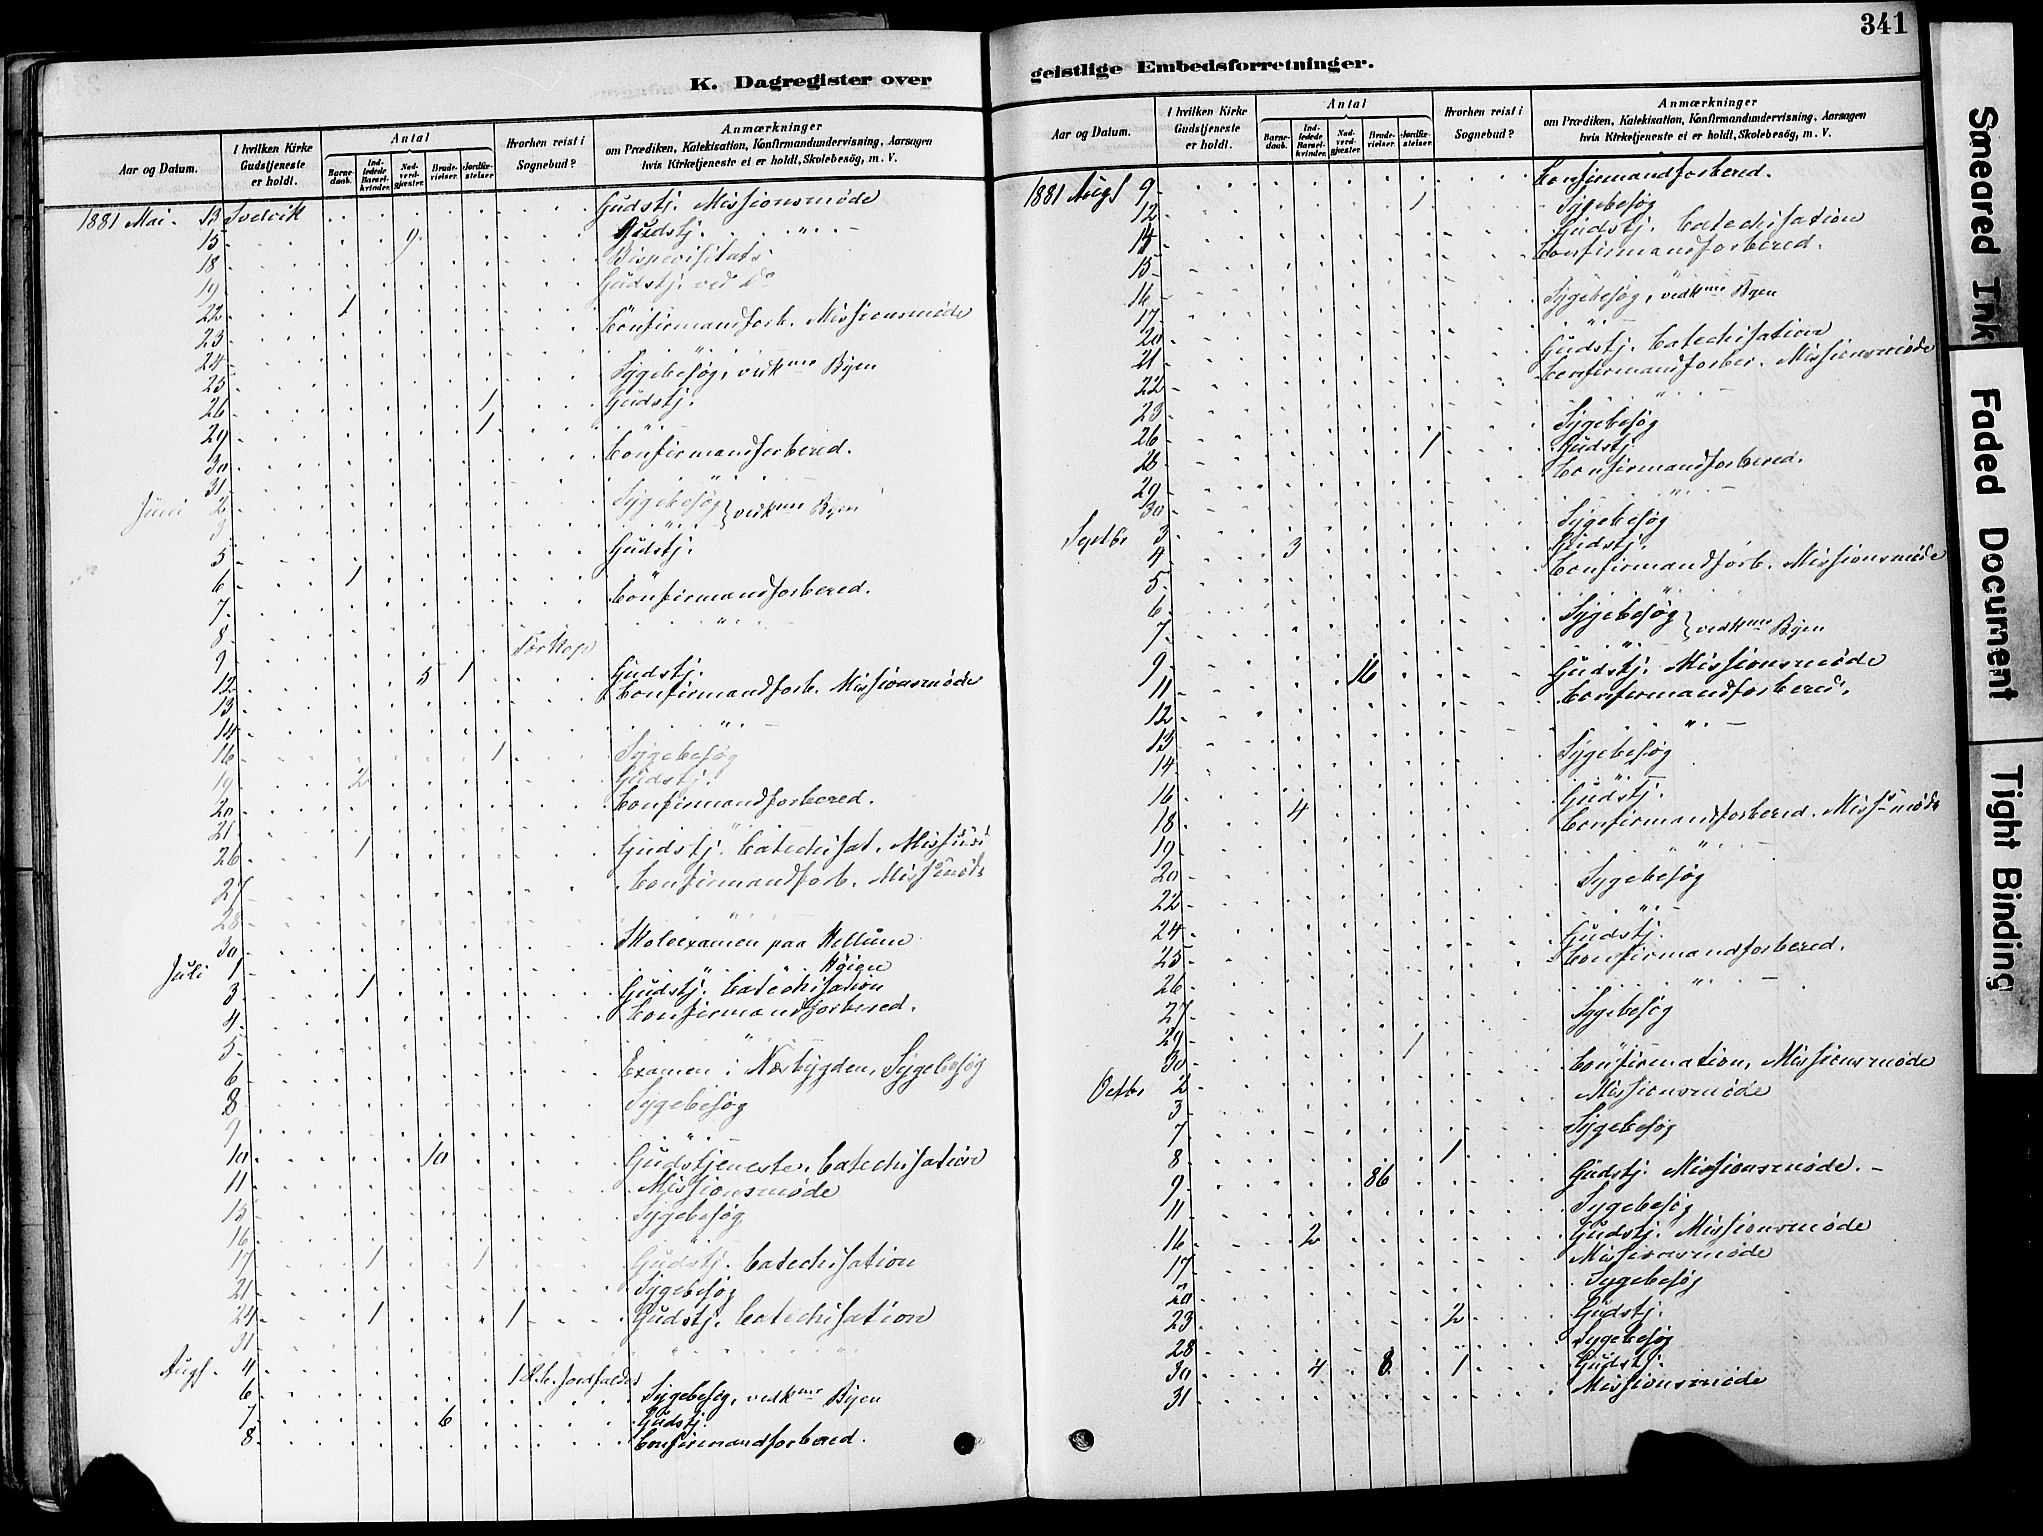 K. Dagregister over
Aar og Datum.
I hvilken Kirke Gudstjeneste er holdt.
Antal
Barnedaab.
Indledede Barselkvinder.
Nadverdgjæster.
Brudevielser.
Jordfæstelser
Hvorhen reist i Sognebud?
Anmærkninger
om Prædiken, Katekisation, Konfirmandundervisning, Aarsagen
hvis Kirketjeneste ei er holdt, Skolebesög, m. V.
1881 Mai. 13 Svelvik Gudstj. Missionsmøde
15 9 Gudstj. " -
18 Bispevisitats
19 Gudstj. ved do
22 1
23 Confirmandforb. Missionsmøde
24 "
25 Sygebesøg, vedkme Byen
26 1 Gudstj.
29 1 "
30 Confirmandforbered.
31 "
Juni 2 Sygebesøg } vedkme Byen
3 "
5 Gudstj.
6 1
7 Confirmandforbered.
8 "
9 Torkop
12 5 1 Gudstj.
13 Confirmandforb. Missionsmøde
14 " -
16 1 Sygebesøg
19 2 Gudstj.
20 Confirmandforbered.
21 "
26 1 Gudstj. Catechisat.
27 Confirmandforb.
28 " -
30 Skoleexamen paa
Juli 1 Høien
3 1 Gudstj. Catechisation
4 Confirmandforbered.
5 "
6 Examen i Nærbygden, Sygebesøg
8 Sygebesøg
9 "
10 10 Gudstjeneste. Catechisation
11 Missionsmøde
15 Sygebesøg
16 "
17 1 1 Gudstj. Catechisation
21 Sygebesøg
24 1 1 Gudstj. Catechisation
31 " "
Augs. 4 1
6 Sygebesøg, vedkme Byen
7 6 Gudstj.
8 Confirmandforbered.
341
geistlige Embedsforretninger.
Aar og Datum.
I hvilken Kirke Gudstjeneste er holdt.
Antal
Barnedaab.
Indledede Barselkvinder.
Nadverdgjæster.
Brudevielser.
Jordfæstelser
Hvorhen reist i Sognebud?
Anmærkninger
om Prædiken, Katekisation, Konfirmandundervisning, Aarsagen
hvis Kirketjeneste ei er holdt, Skolebesög, m. V.
1881 Augs 9 Confirmandforbered.
12 1 Sygebesøg
14 Gudstj. Catechisation
15 Confirmandforbered.
16 "
17 Sygebesøg, vedkme Byen
20 "
21 Gudstj. Catechisation
22 Confirmandforber. Missionsmøde
23 " -
26 Sygebesøg
28 1 Gudstj.
29 Confirmandforbered.
30 " -
Septbr 3 Sygebesøg
4 3 Gudstj.
5 Confirmandforb. Missionsmøde
6 "
7 Sygebesøg } vedkme Byen
9 "
11 16 Gudstj. Missionsmøde
12 Confirmandforbered.
13 " -
14 Sygebesøg
16 "
18 4 Gudstj.
19 Confirmandforbered. Miss-møde
20 " -
22 Sygebesøg
24 " -
25 Gudstj.
26 Confirmandforbered.
27 " -
29 Sygebesøg
30 1 "
Octbr 2 Confirmation, Missionsmøde
3 Missionsmøde
7 Sygebesøg
8 1
9 86 Gudstj. Missionsmøde. -
11 Sygebesøg
16 2 Gudstj. Missionsmøde
17 Missionsmøde
20 Sygebesøg
23 2 Gudstj.
28 Sygebesøg
30 4 8 1 Gudstj.
31 Missionsmøde
Smeared Ink
Faded Document
Tight Binding